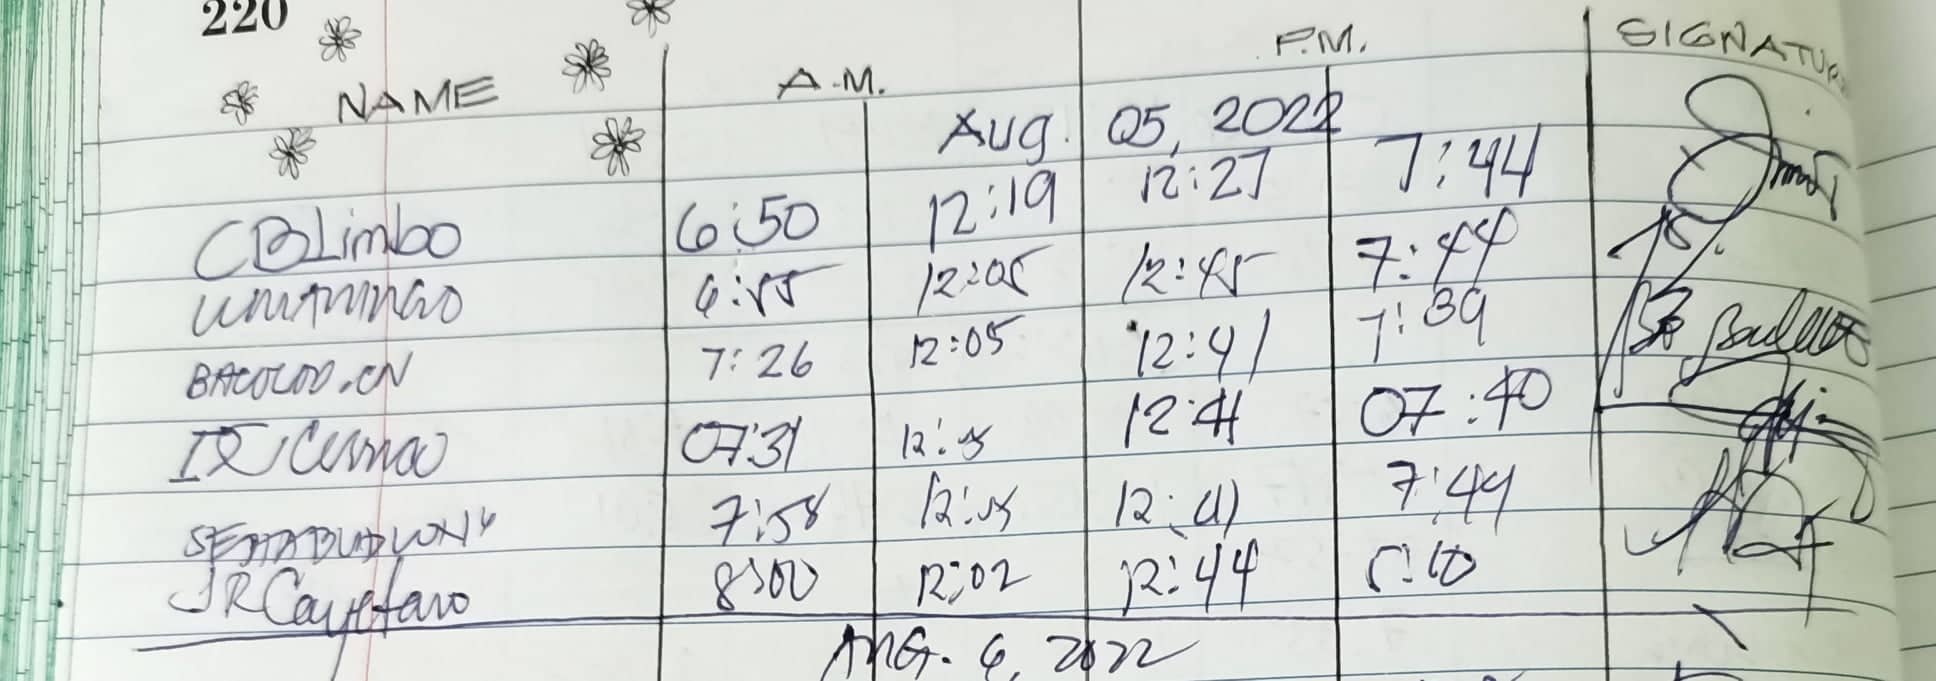 220
NAME A.M. P.M. SIGNATU
Aug. 05, 2022
CBLimbo 6:50 12:19 12:27 7:44
6:55 12:05 12:45 7:44
BACOLOD.CN 7:26 12:05 12:41 7:39
07:31 12:05 12:41 07:40
7:58 12:05 12:41 7:44
JRCayetano 8:00 12:02 12:44 5:10
AUG. 6, 2022